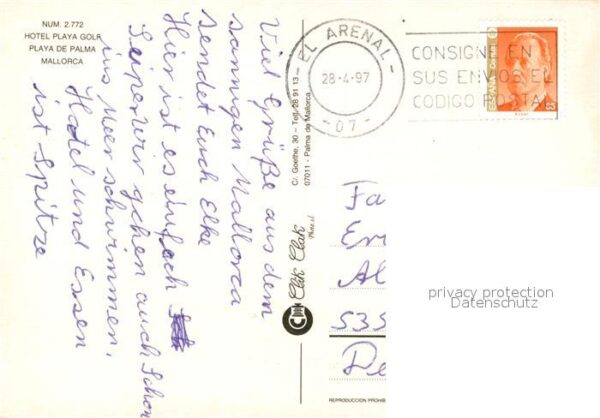 NUM. 2.772
HOTEL PLAYA GOLF
PLAYA DE PALMA
MALLORCA
Viel Grüße aus dem
sonnigen Mallorca
sendet Euch Elke
Hier ist es einfach
Super, wir gehen auch schon
ins Meer schwimmen,
Hotel und Essen
ist Spitze
C/. Goethe, 30 - Telf. 28 91 13 -
07011 - Palma de Mallorca
Clik Clak
Photo sl
EL ARENAL
28-4-97
-07-
CONSIGNE EN
SUS ENVIOS EL
CODIGO POSTAL
ESPAÑA Correos
Fa
Er
Al
535
De
privacy protection
Datenschutz
REPRODUCCION PROHIB